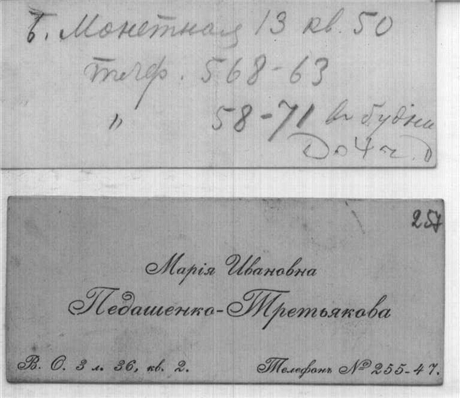 Б. Монетная 13 кв. 50
телеф. 568-63
" 58-71 в будни
До 4 ч. D
257
Марія Ивановна
Педашенко-Третьякова
В. О. 3 л. 36, кв. 2.
Телефонъ № 255-47.